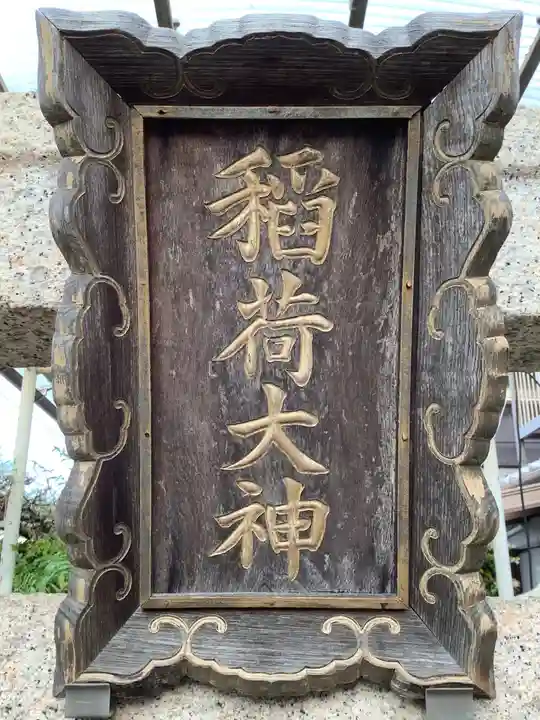 稲荷大神